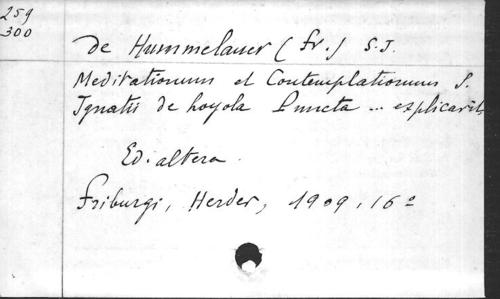 259
300
de Hummelauer (Fr.) S.J.
Meditationum et Contemplationum S.
Ignatii de Loyola Puncta ... explicavit
Ed. altera.
Friburgi, Herder, 1909, 16º